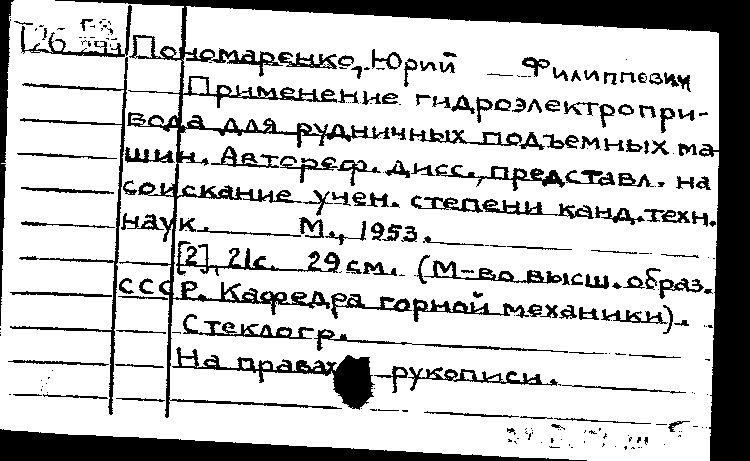 Г-8
Т26 299 Пономаренко, Юрий Филиппович
Применение гидроэлектропри-
вода для рудничных подъемных ма-
шин. Автореф. дисс., представл. на
соискание учен. степени канд. техн.
наук. М., 1953.
[2], 21с. 29 см. (М-во высш. образ.
СССР. Кафедра горной механики).
Стеклогр.
На правах рукописи.